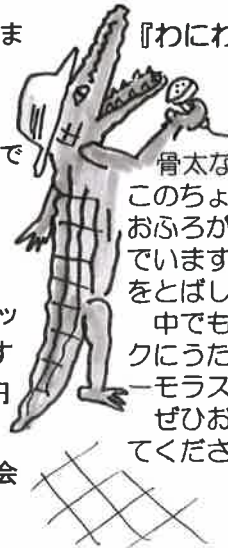 ま
で
ッ
す
会
『わにわ
骨太な
このちょ
おふろが
でいます
をとばし
中でも
クにうた
ーモラス
ぜひお
てくださ